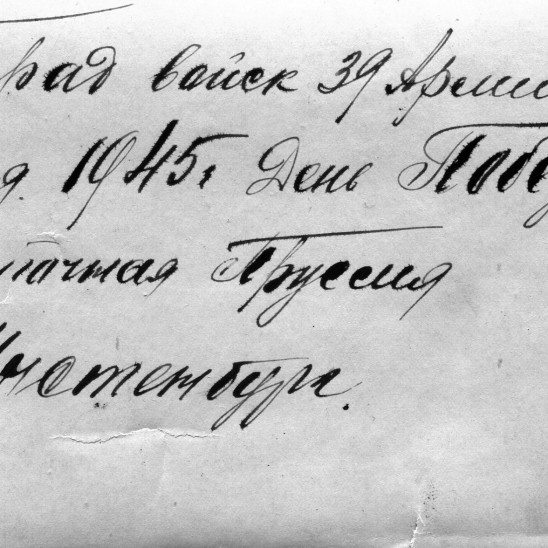 рад войск 39 Арми
д. 1945г День Побе
точная Пруссия
нстенбург.